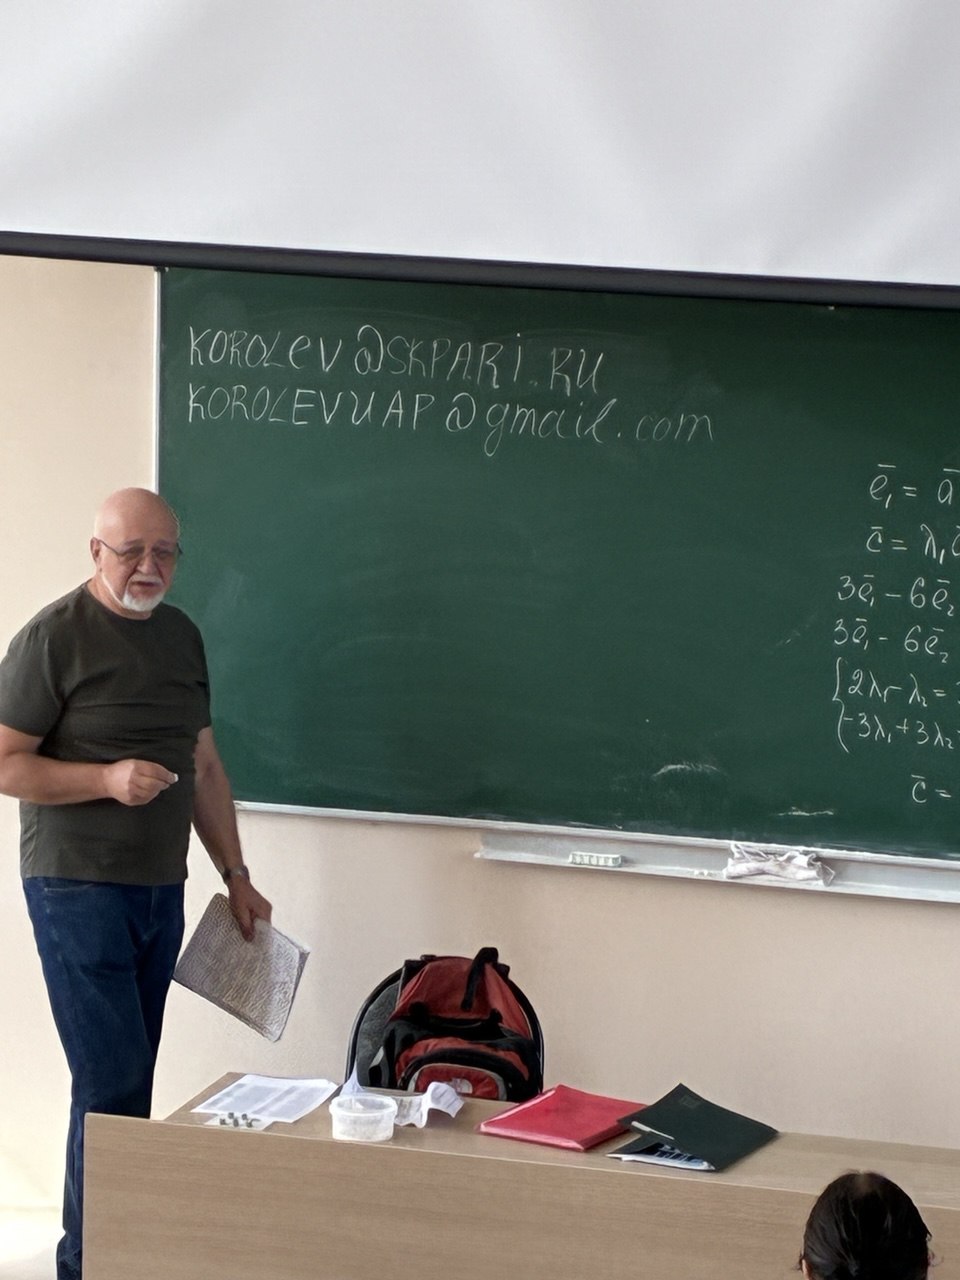 KOROLEV@SKPARI.RU
KOROLEVUAP@gmail.com
e̅₁ = a̅
c̅ = λ₁
3e̅₁ - 6e̅₂
3e̅₁ - 6e̅₂
2λ₁ - λ₂ =
-3λ₁ + 3λ₂
c̅ =